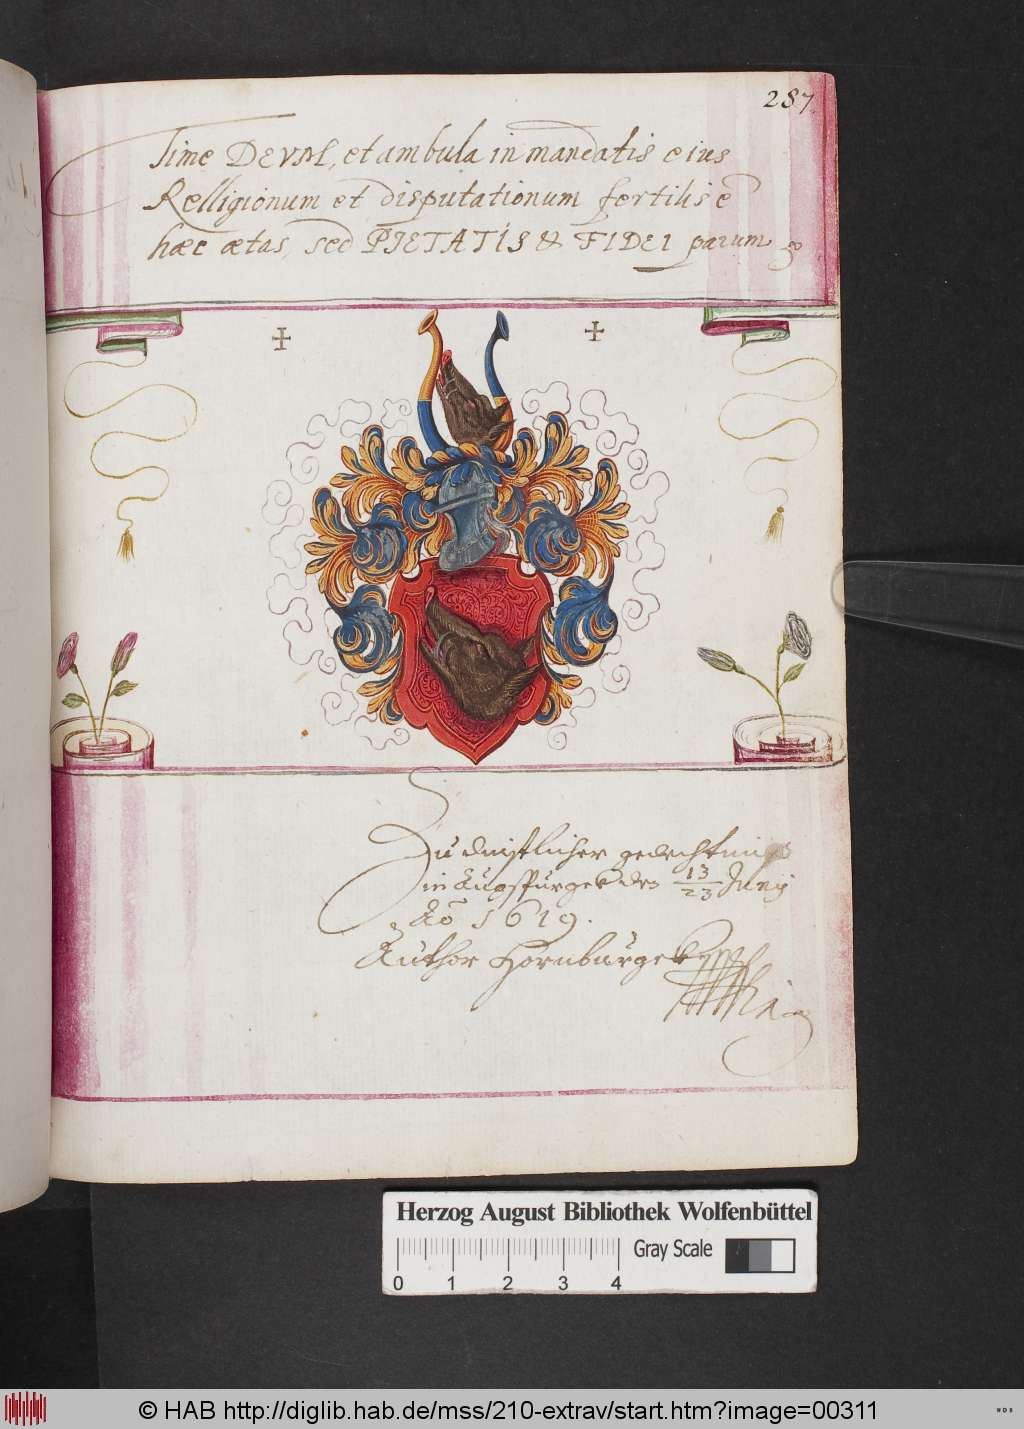 287
Time DEVM, et ambula in mandatis eius
Relligionum et disputationum fertilis ē
hæc ætas, sed PIETATIS & FIDEI parum
Zu christlicher gedechtnus
in Augspurg den 13/23 Junij
Aō 1619.
Herzog August Bibliothek Wolfenbüttel
Gray Scale
0 1 2 3 4
© HAB http://diglib.hab.de/mss/210-extrav/start.htm?image=00311